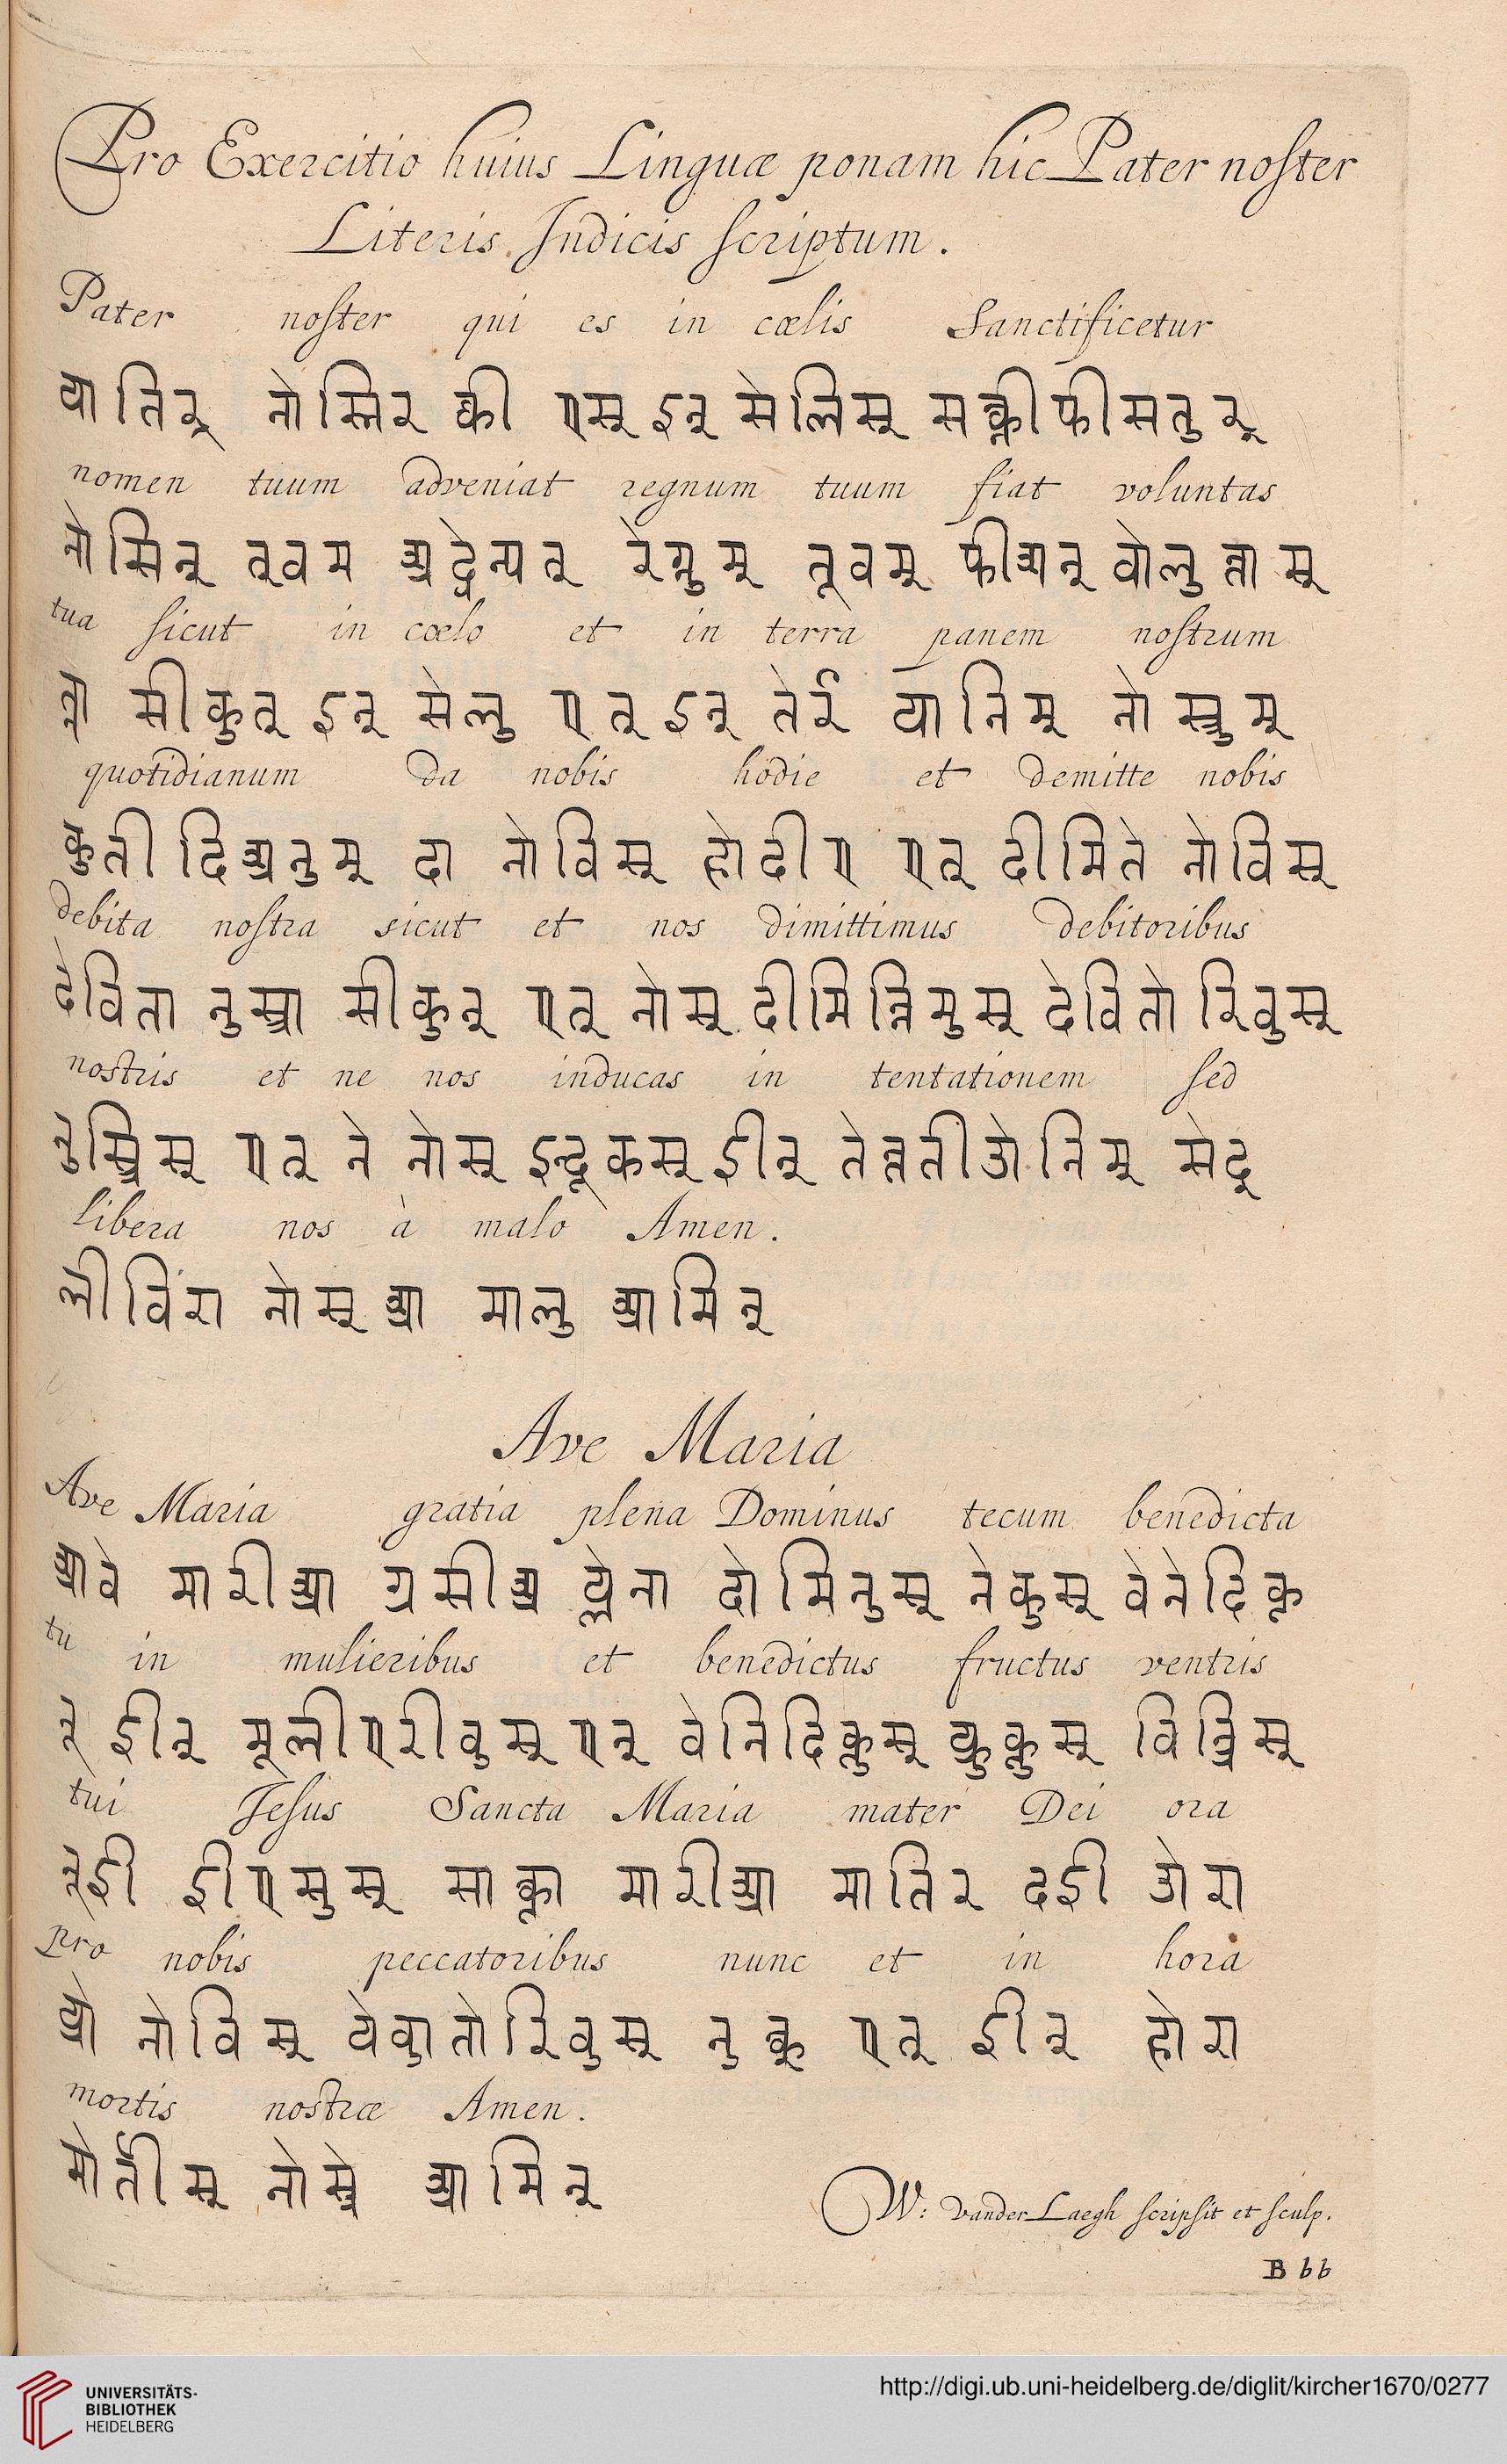 Pro Exercitio huius Linguæ ponam hic Pater noster
Literis Indicis scriptum.
Pater noster qui es in cœlis Sanctificetur
पातिर् नोस्तिर क्वी एस् इन् सेलिस् सङ्क्तीफीसतुर्
nomen tuum adveniat regnum tuum fiat voluntas
नोमिन् तूवम अद्वेन्यत् रेग्नुम् तूवम् फीअत् वोलुन्तास्
tua sicut in cœlo et in terrà panem nostrum
सीकुत् इन् सेलु एत् इन् तेर्र पानिम् नोस्त्रुम्
quotidianum da nobis hodie et demitte nobis
कुतीदिअनुम् दा नोविस् होदीए एत् दीमिते नोविस्
debita nostra sicut et nos dimittimus debitoribus
देविता नुस्त्रा सीकुत् एत् नोस् दीमित्तिमुस् देवितोरिवुस्
nostris et ne nos inducas in tentationem sed
नुस्त्रिस् एत् ने नोस् इन्दूकस् ईन् तेन्ततीओनिम् सेद्
libera nos à malo Amen.
लीविरा नोस् आ मालु आमिन्
Ave Maria
Ave Maria gratia plena Dominus tecum benedicta
आवे मारीआ ग्रसीअ प्लेना दोमिनुस् तेकुम् वेनेदिक्त
tu in mulieribus et benedictus fructus ventris
ईन् मूलीएरीवुस् एत् वेनिदिक्तुस् फ्रुक्तुस् विन्त्रिस्
tui Jesus Sancta Maria mater Dei ora
ईएसुस् साङ्क्ता मारीआ मातिर दई ओरा
Pro nobis peccatoribus nunc et in hora
प्रो नोविस् पेकातोरिवुस् नुङ्क् एत् ईन् होरा
mortis nostræ Amen.
मोर्तीस् नोस्त्रे आमिन्
W: vander Laegh scripsit et sculp.
B bb
UNIVERSITÄTS-
BIBLIOTHEK
HEIDELBERG
http://digi.ub.uni-heidelberg.de/diglit/kircher1670/0277